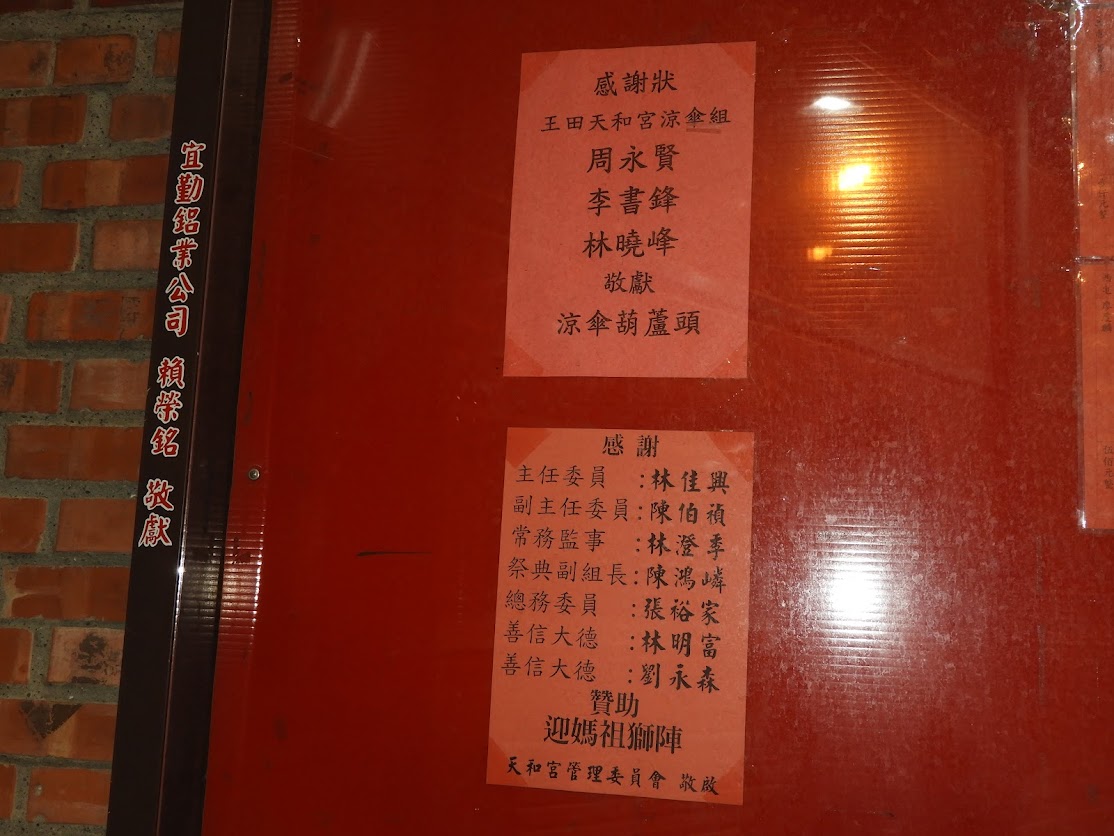 宜勤鋁業公司 賴榮銘 敬獻
感謝狀
王田天和宮涼傘組
周永賢
李書鋒
林曉峰
敬獻
涼傘葫蘆頭
感謝
主任委員 :林佳興
副主任委員:陳伯禎
常務監事 :林澄季
祭典副組長:陳鴻嶙
總務委員 :張裕家
善信大德 :林明富
善信大德 :劉永森
贊助
迎媽祖獅陣
天和宮管理委員會 敬啟